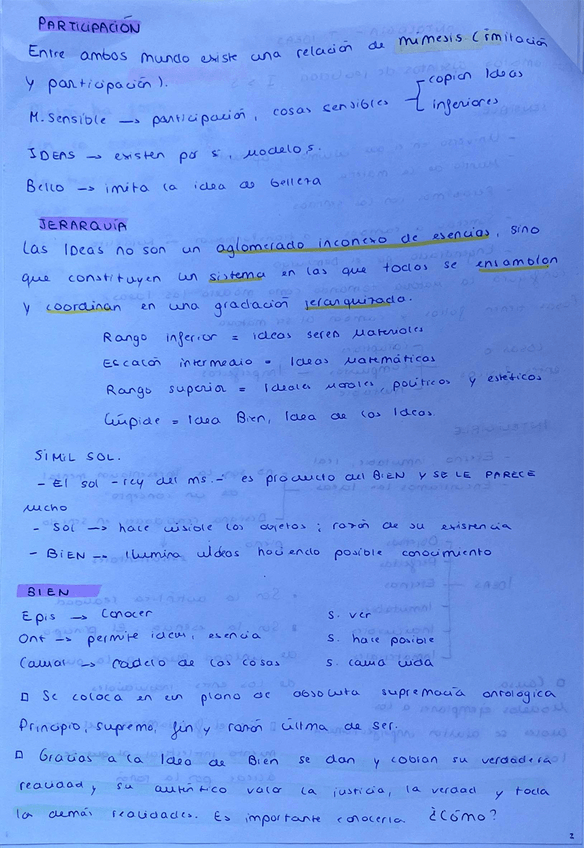 PARTICIPACIÓN
Entre ambos mundo existe una relación de mímesis (imitación
y participación).
M. Sensible → participación, cosas sensibles
copian Ideas
inferiores
IDEAS → existen por sí, modelos.
Bello → imita la idea de belleza
JERARQUÍA
Las IDEAS no son un aglomerado inconexo de esencias, sino
que constituyen un sistema en las que todos se ensamblan
y coordinan en una gradación jerarquizada.
Rango inferior = ideas seres materiales
Escalón intermedio = Ideas matemáticas
Rango superior = Ideales morales, políticos y estéticos
Cúspide = Idea Bien, Idea de las Ideas.
SIMIL SOL.
- El sol - rey del ms. - es producto del BIEN Y SE LE PARECE
mucho
- Sol → hace visible los objetos; razón de su existencia
- BIEN → Ilumina Ideas haciendo posible conocimiento
BIEN
Epis → Conocer
s. ver
Ont → permite ideas, esencia
s. hace posible
Causal → modelo de las cosas
s. causa vida
□ Se coloca en un plano de absoluta supremacía ontologica
Principio, supremo, fin y razón última de ser.
□ Gracias a la Idea de Bien se dan y cobran su verdadera
realidad, y su auténtico valor la justicia, la verdad y toda
la demás realidades. Es importante conocerla ¿Cómo?
2